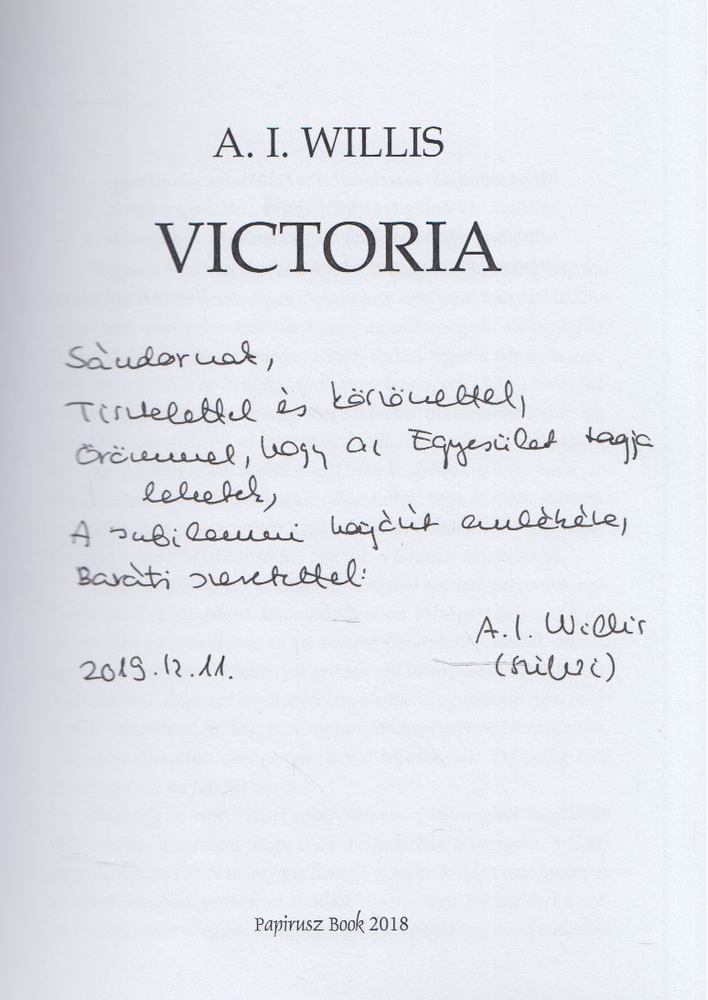 A. I. WILLIS
VICTORIA
Sándornak,
Tisztelettel és köszönettel,
Örömmel, hogy az Egyesület tagja
lehetek,
A jubileumi hajóút emlékére,
Baráti szeretettel:
A. I. Willis
2019.12.11. (Szilvi)
Papirusz Book 2018